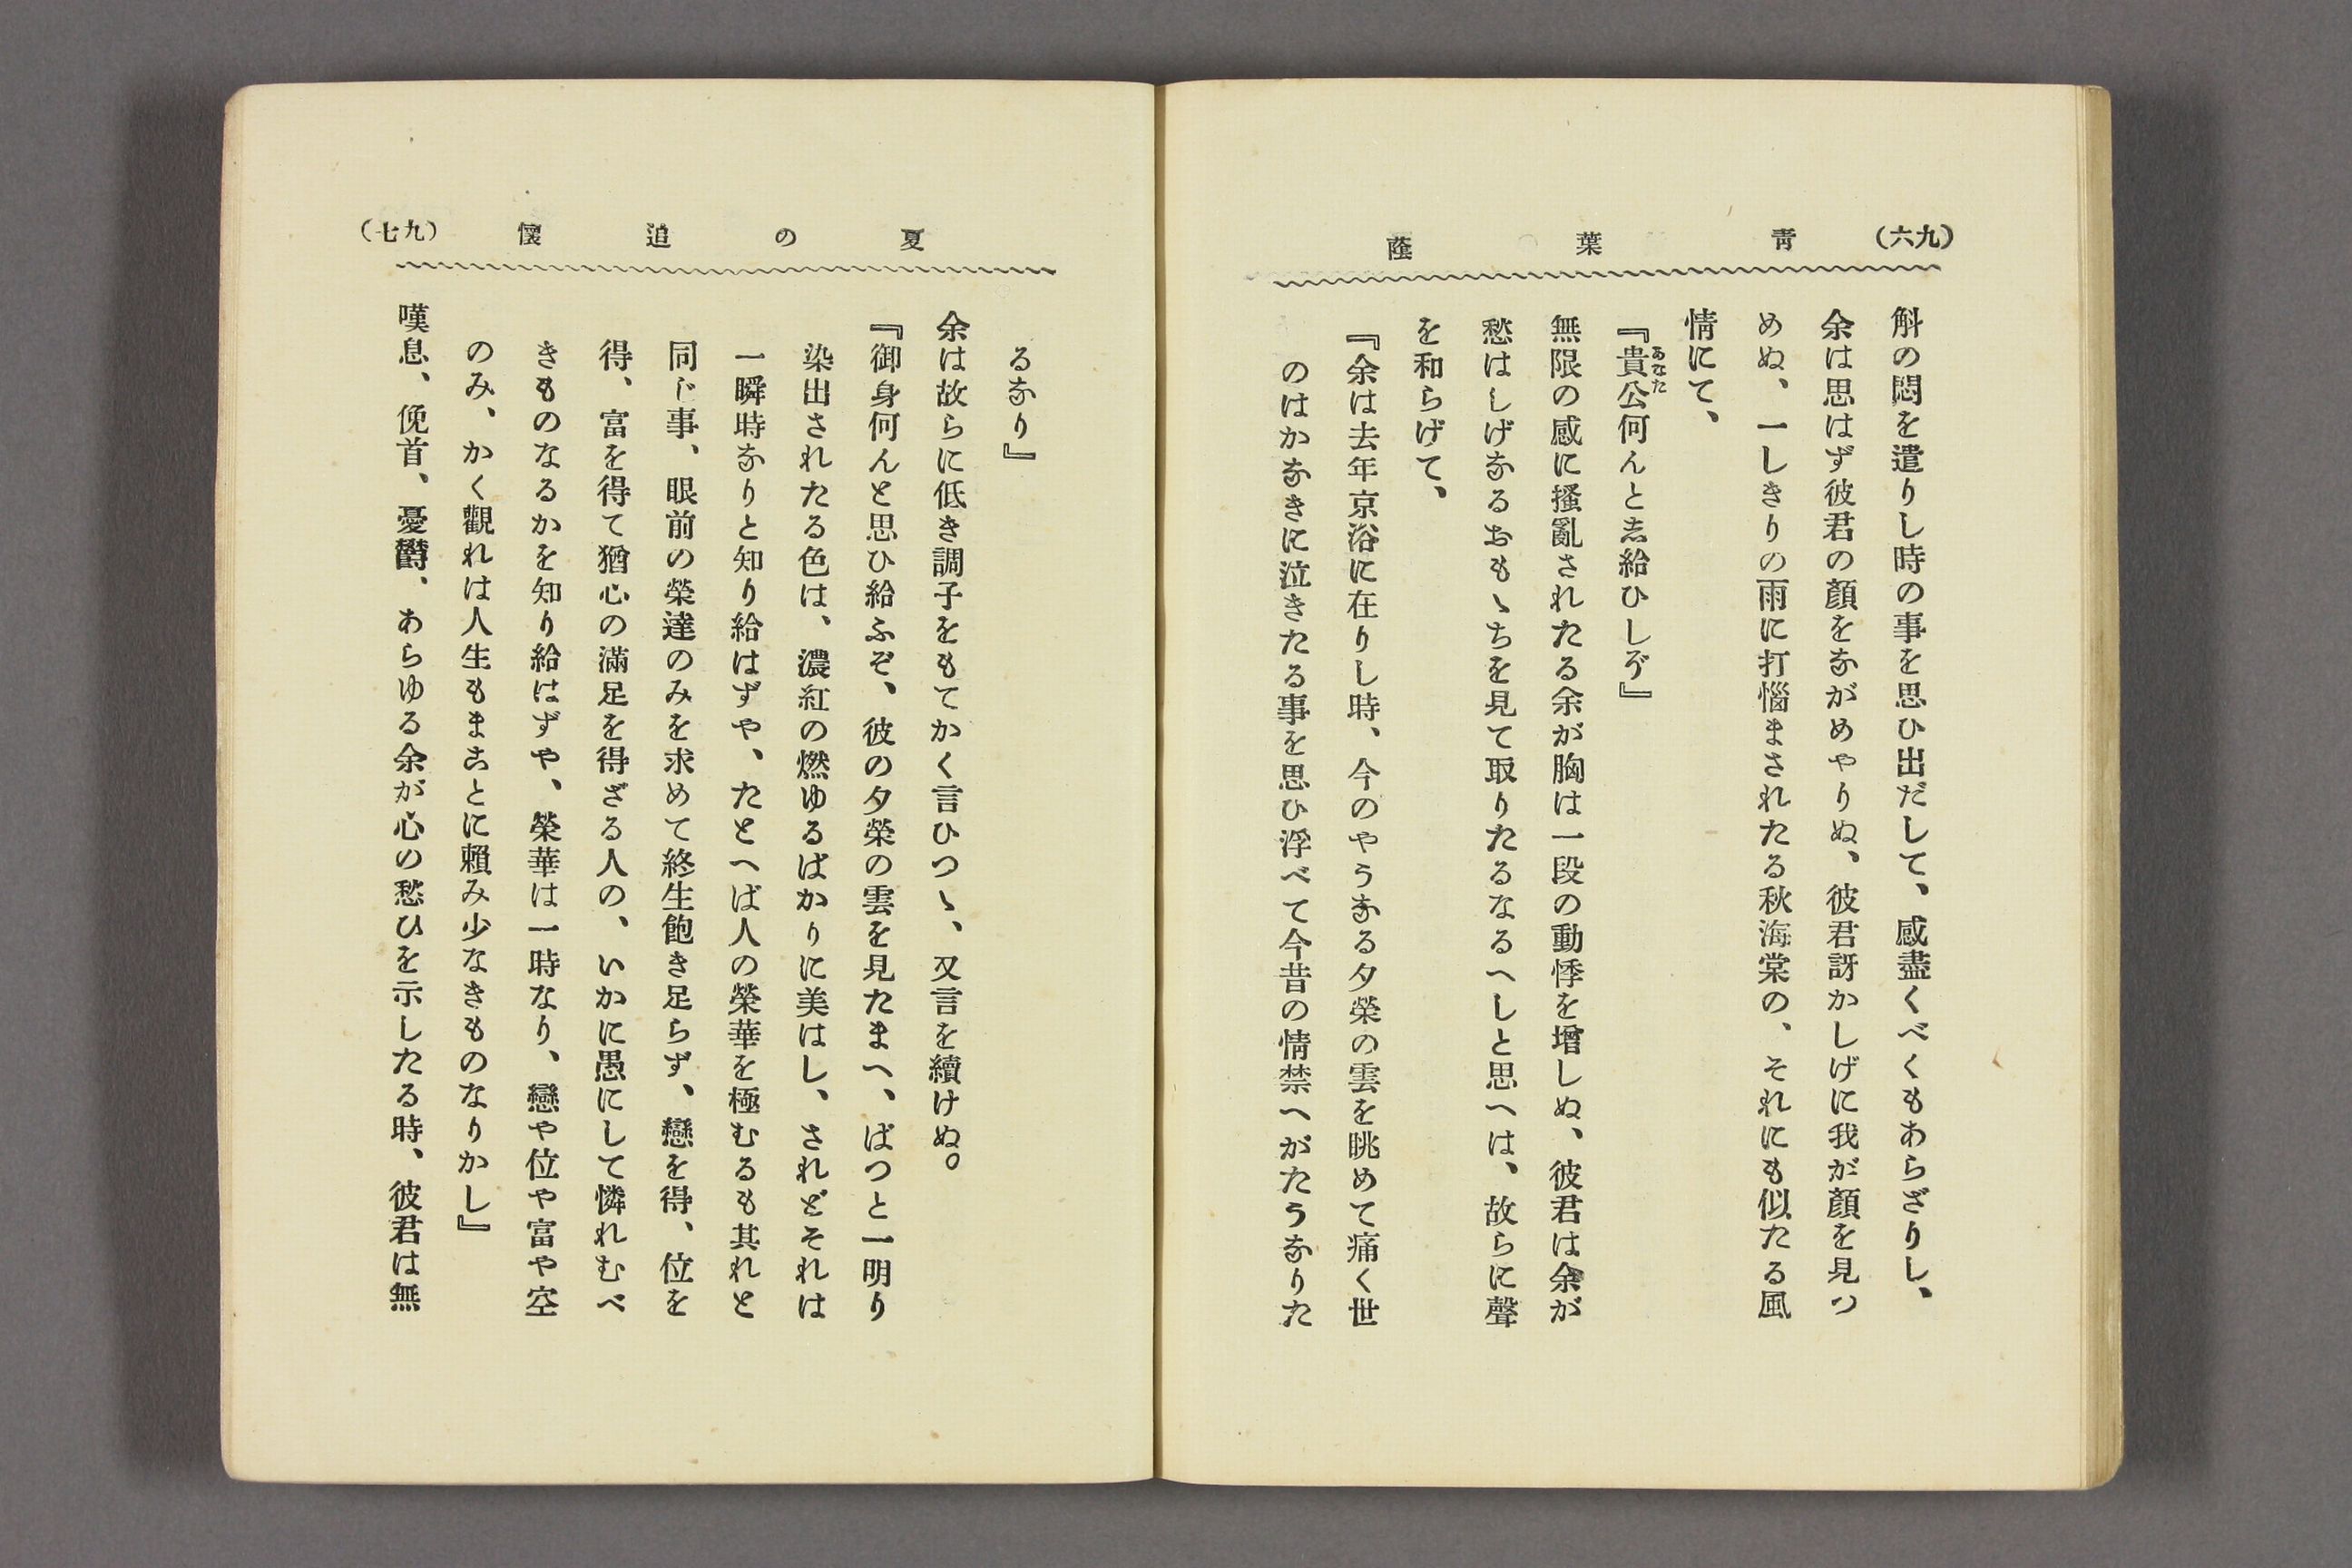 (九六)
青葉蔭
斛の悶を遣りし時の事を思ひ出だして、感盡くべくもあらざりし、
余は思はず彼君の顏をながめやりぬ、彼君訝かしげに我が顏を見つ
めぬ、一しきりの雨に打惱まされたる秋海棠の、それにも似たる風
情にて、
『貴公何んと志給ひしぞ』
あなた
無限の感に搔亂されたる余が胸は一段の動悸を增しぬ、彼君は余が
愁はしげなるおもゝちを見て取りたるなるへしと思へは、故らに聲
を和らげて、
『余は去年京浴に在りし時、今のやうなる夕榮の雲を眺めて痛く世
のはかなきに泣きたる事を思ひ浮べて今昔の情禁へがたうなりた
夏の追懷
(九七)
るなり』
余は故らに低き調子をもてかく言ひつゝ、又言を續けぬ。
『御身何んと思ひ給ふぞ、彼の夕榮の雲を見たまへ、ぱつと一明り
染出されたる色は、濃紅の燃ゆるばかりに美はし、されどそれは
一瞬時なりと知り給はずや、たとへば人の榮華を極むるも其れと
同じ事、眼前の榮達のみを求めて終生飽き足らず、戀を得、位を
得、富を得て猶心の滿足を得ざる人の、いかに愚にして憐れむべ
きものなるかを知り給はずや、榮華は一時なり、戀や位や富や空
のみ、かく觀れは人生もまことに賴み少なきものなりかし』
嘆息、俛首、憂鬱、あらゆる余が心の愁ひを示したる時、彼君は無